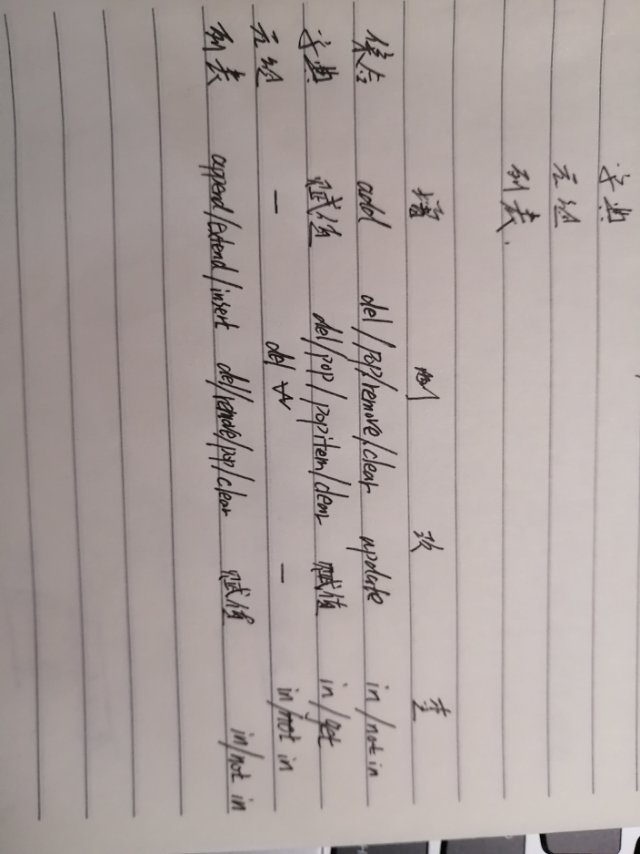 字典
元组
列表.
增 删 改 查
集合 add del/pop/remove/clear update in/not in
字典 赋值 del/pop/popitem/clear 赋值 in/get
元组 — del — in/not in
列表 append/extend/insert del/remove/pop/clear 赋值 in/not in